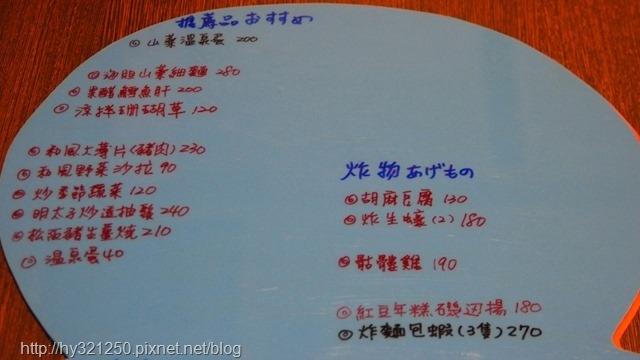 推薦品おすすめ
山藥溫泉蛋 200
海胆山藥細麵 280
柴醋鱈魚肝 200
涼拌珊瑚草 120
和風大薄片(豬肉) 230
和風野菜沙拉 90
炒季節蔬菜 120
明太子炒透抽鬚 240
松阪豬生薑燒 210
溫泉蛋 40
炸物あげもの
胡麻豆腐 130
炸生蠔(2) 180
骷髏雞 190
紅豆年糕磯辺揚 180
炸麵包蝦(3隻) 270
http://hy321250.pixnet.net/blog